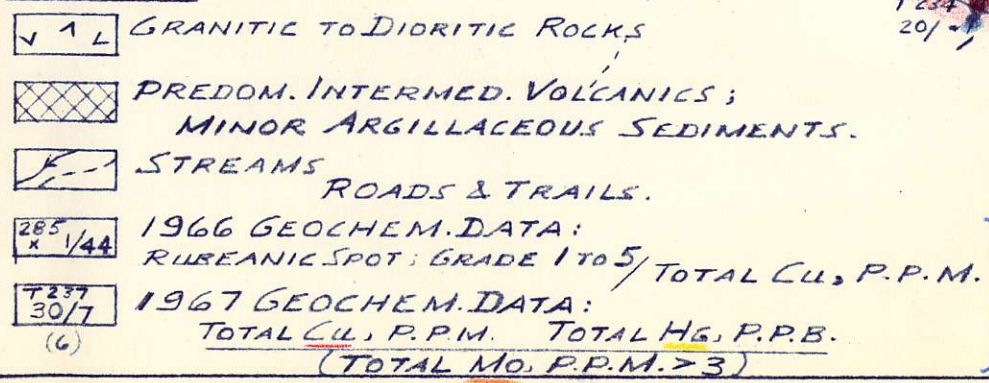 GRANITIC TO DIORITIC ROCKS
20/
PREDOM. INTERMED. VOLCANICS;
MINOR ARGILLACEOUS SEDIMENTS.
STREAMS
ROADS & TRAILS.
285
x 1/44
1966 GEOCHEM. DATA:
RUBEANIC SPOT; GRADE 1 TO 5/TOTAL CU, P.P.M.
T237
30/7
(6)
1967 GEOCHEM. DATA:
TOTAL CU, P.P.M. TOTAL HG, P.P.B.
(TOTAL MO, P.P.M. > 3)